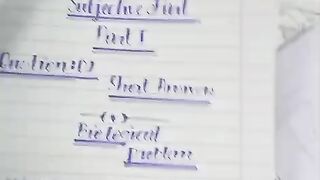 Subjective Part
Part I
Question:01
Short Answers
(1)
Biological
Problem